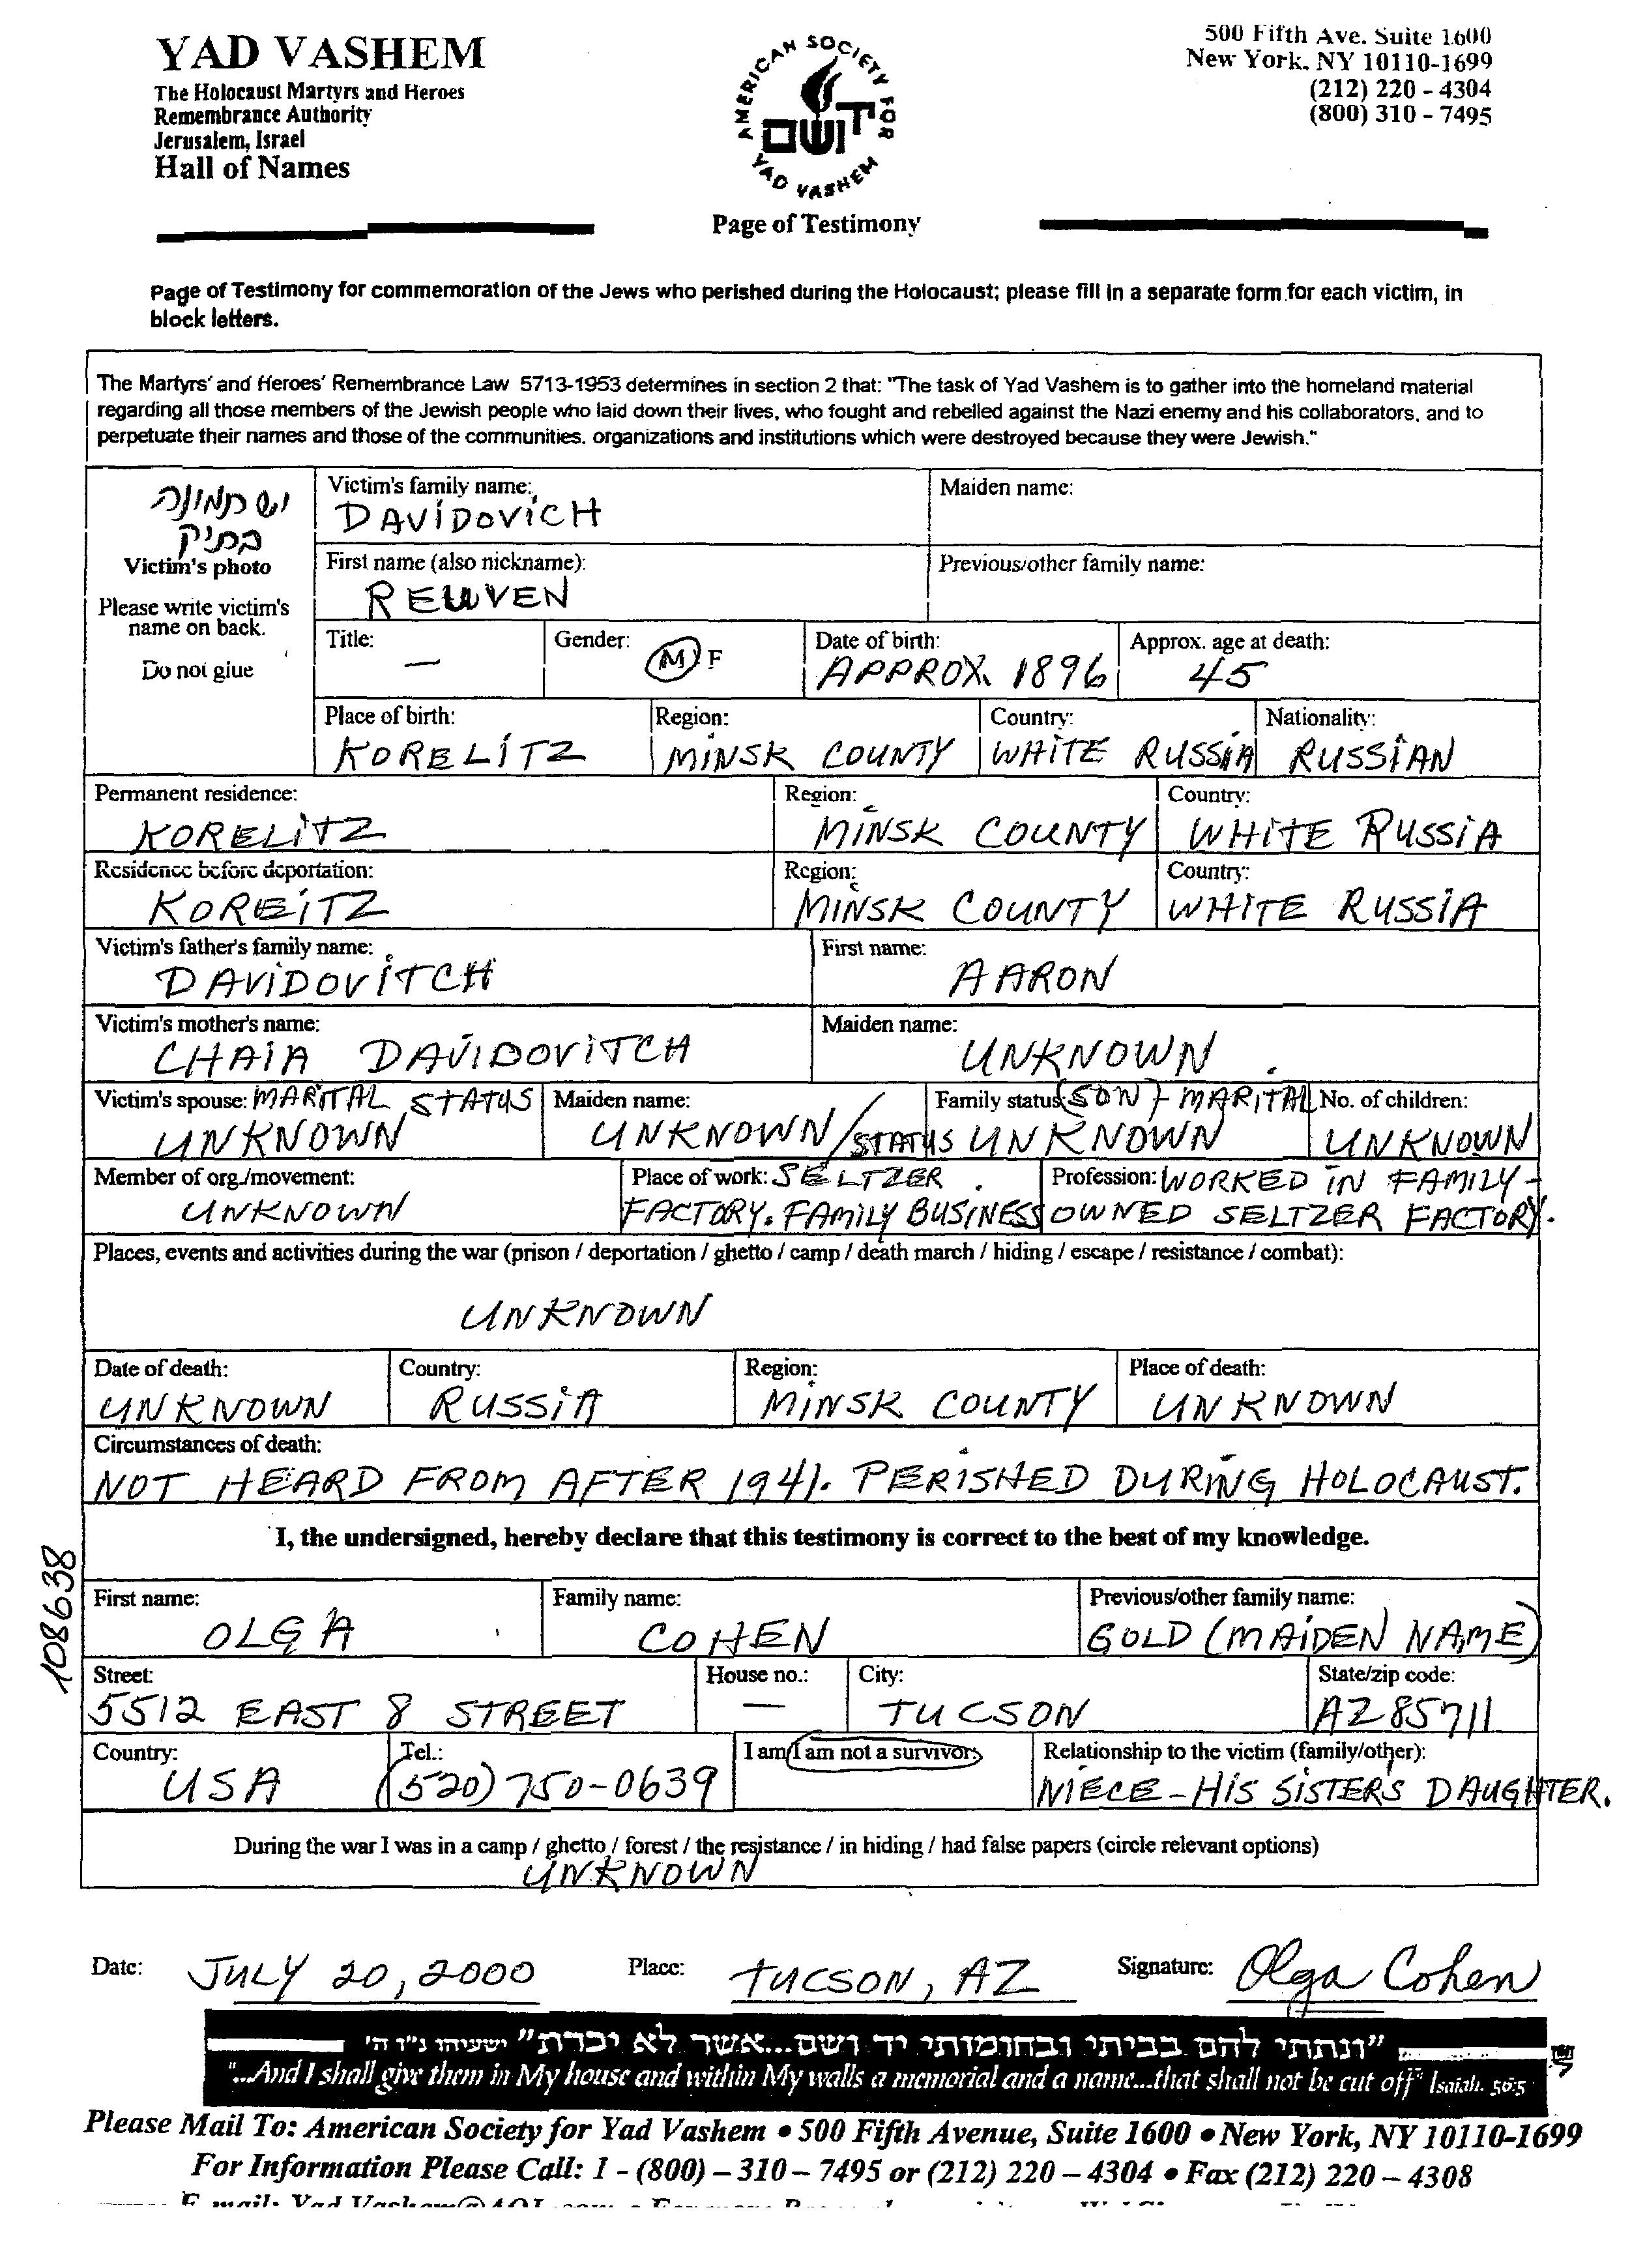 YAD VASHEM
The Holocaust Martyrs and Heroes
Remembrance Authority
Jerusalem, Israel
Hall of Names
AMERICAN SOCIETY FOR
יד ושם
YAD VASHEM
Page of Testimony
500 Fifth Ave. Suite 1600
New York, NY 10110-1699
(212) 220 - 4304
(800) 310 - 7495
Page of Testimony for commemoration of the Jews who perished during the Holocaust; please fill in a separate form for each victim, in
block letters.
The Martyrs' and Heroes' Remembrance Law 5713-1953 determines in section 2 that: "The task of Yad Vashem is to gather into the homeland material
regarding all those members of the Jewish people who laid down their lives, who fought and rebelled against the Nazi enemy and his collaborators, and to
perpetuate their names and those of the communities, organizations and institutions which were destroyed because they were Jewish."
יש תמונה
בתיק
Victim's photo
Please write victim's
name on back.
Do not glue
Victim's family name: DAVIDOVICH
Maiden name:
First name (also nickname): REUVEN
Previous/other family name:
Title: —
Gender: M F
Date of birth: APPROX. 1896
Approx. age at death: 45
Place of birth: KORELITZ
Region: MINSK COUNTY
Country: WHITE RUSSIA
Nationality: RUSSIAN
Permanent residence: KORELITZ
Region: MINSK COUNTY
Country: WHITE RUSSIA
Residence before deportation: KOREITZ
Region: MINSK COUNTY
Country: WHITE RUSSIA
Victim's father's family name: DAVIDOVITCH
First name: AARON
Victim's mother's name: CHAIA DAVIDOVITCH
Maiden name: UNKNOWN
Victim's spouse: MARITAL STATUS
UNKNOWN
Maiden name: UNKNOWN
Family status (SON) - MARITAL
/STATUS UNKNOWN
No. of children: UNKNOWN
Member of org./movement: UNKNOWN
Place of work: SELTZER
FACTORY. FAMILY BUSINESS
Profession: WORKED IN FAMILY-
OWNED SELTZER FACTORY.
Places, events and activities during the war (prison / deportation / ghetto / camp / death march / hiding / escape / resistance / combat):
UNKNOWN
Date of death: UNKNOWN
Country: RUSSIA
Region: MINSK COUNTY
Place of death: UNKNOWN
Circumstances of death:
NOT HEARD FROM AFTER 1941. PERISHED DURING HOLOCAUST.
I, the undersigned, hereby declare that this testimony is correct to the best of my knowledge.
108638
First name: OLGA
Family name: COHEN
Previous/other family name: GOLD (MAIDEN NAME)
Street: 5512 EAST 8 STREET
House no.: —
City: TUCSON
State/zip code: AZ 85711
Country: USA
Tel.: (520) 750-0639
I am/I am not a survivor
Relationship to the victim (family/other):
NIECE - HIS SISTERS DAUGHTER.
During the war I was in a camp / ghetto / forest / the resistance / in hiding / had false papers (circle relevant options)
UNKNOWN
Date: JULY 20, 2000
Place: TUCSON, AZ
Signature: Olga Cohen
"ונתתי להם בביתי ובחומותי יד ושם...אשר לא יכרת" ישעיהו נ"ו ה'
"...And I shall give them in My house and within My walls a memorial and a name...that shall not be cut off" Isaiah. 56:5
Please Mail To: American Society for Yad Vashem • 500 Fifth Avenue, Suite 1600 • New York, NY 10110-1699
For Information Please Call: 1 - (800) – 310 – 7495 or (212) 220 – 4304 • Fax (212) 220 – 4308